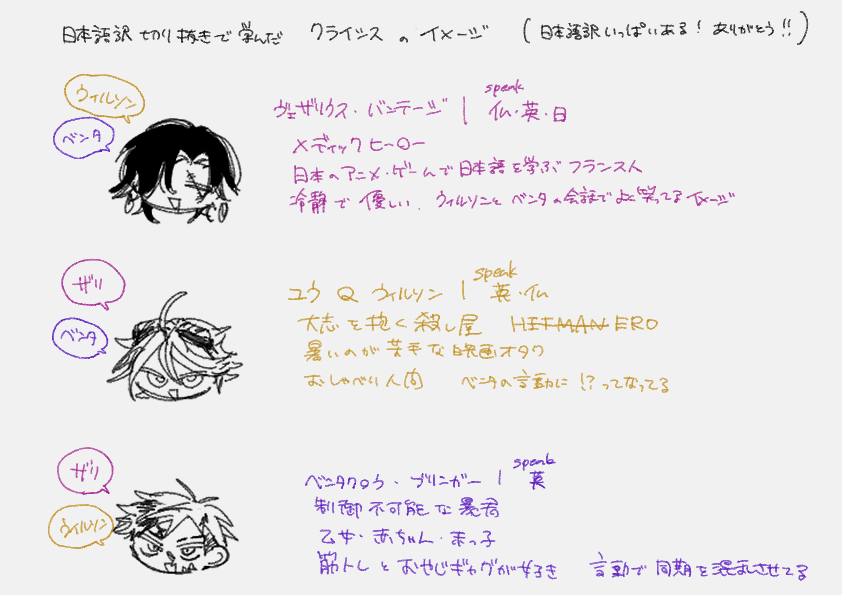 日本語訳 切り抜きで学んだ クライシス の イメージ (日本語訳いっぱいある! ありがとう!!)
ウィルソン
ベンタ
ヴェザリウス・バンテージ | speak 仏・英・日
メディックヒーロー
日本のアニメ・ゲームで日本語を学ぶフランス人
冷静で優しい. ウィルソンとベンタの会話でよく笑ってるイメージ
ザリ
ベンタ
ユウ Q ウィルソン | speak 英・仏
大志を抱く殺し屋 HITMAN ERO
暑いのが苦手な映画オタク
おしゃべり人間 ベンタの言動に !? ってなってる
ザリ
ウィルソン
ベンタクロウ・ブリンガー | speak 英
制御不可能な暴君
乙女・赤ちゃん・末っ子
筋トレとおやじギャグが好き 言動で同期を混乱させてる